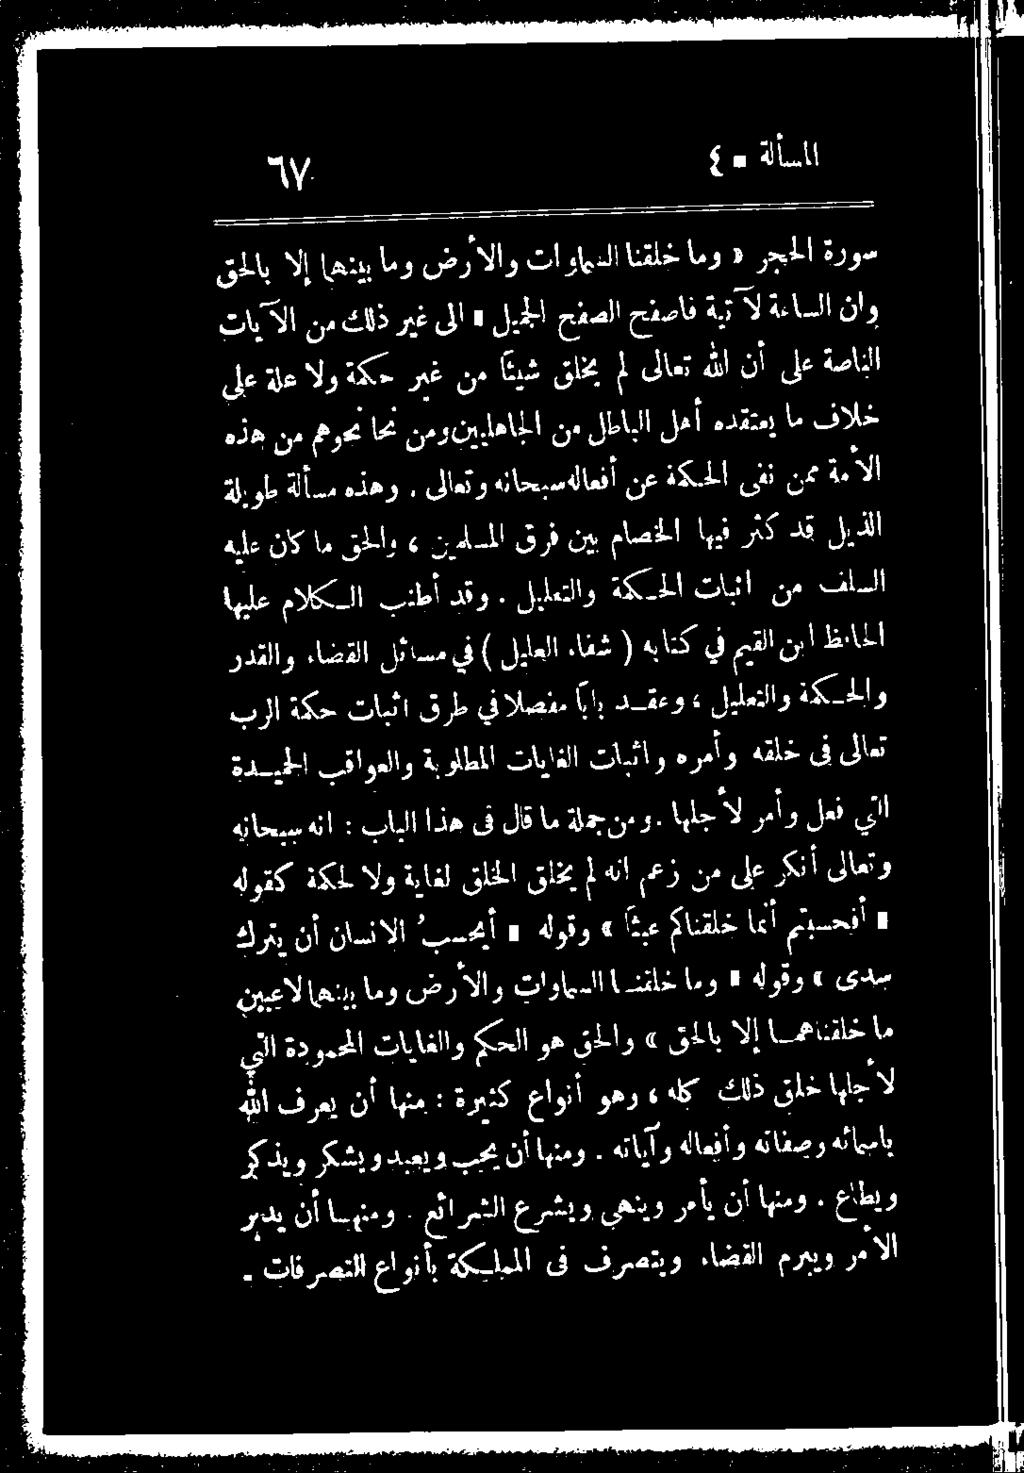 المسألة ٤ ٦٧
سورة الحجر « وما خلقنا السماوات والأرض وما بينهما إلا بالحق
وان الساعة لآتية فاصفح الصفح الجميل » الى غير ذلك من الآيات
الناصة على أن الله تعالى لم يخلق شيئاً من غير حكمة ولا علة على
خلاف ما يعتقده أهل الباطل من الجاهلين ومن نحا نحوهم من هذه
الأمة ممن نفى الحكمة عن أفعاله سبحانه وتعالى . وهذه مسألة طويلة
الذيل قد كثر فيها الخصام بين فرق المسلمين ، والحق ما كان عليه
السلف من اثبات الحكمة والتعليل . وقد أطنب الكلام عليها
الحافظ ابن القيم في كتابه ( شفاء العليل ) في مسائل القضاء والقدر
والحكمة والتعليل ، وعقد باباً مفصلا في طرق اثبات حكمة الرب
تعالى في خلقه وأمره واثبات الغايات المطلوبة والعواقب الحميدة
التي فعل وأمر لأجلها . ومن جملة ما قال في هذا الباب : انه سبحانه
وتعالى أنكر على من زعم انه لم يخلق الخلق لغاية ولا لحكمة كقوله
« أفحسبتم أنما خلقناكم عبثاً » وقوله « أيحسبُ الانسان أن يترك
سدى » وقوله « وما خلقنا السماوات والأرض وما بينهما لاعبين
ما خلقناهما إلا بالحق » والحق هو الحكم والغايات المحمودة التي
لأجلها خلق ذلك كله ، وهو أنواع كثيرة : منها أن يعرف الله
باسمائه وصفاته وأفعاله وآياته . ومنها أن يحب ويعبد ويشكر ويذكر
ويطاع . ومنها أن يأمر وينهى ويشرع الشرائع . ومنها أن يدبر
الأمر ويبرم القضاء ويتصرف في المملكة بأنواع التصرفات .